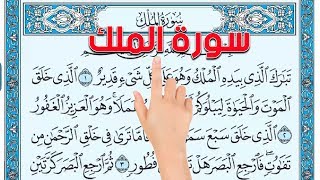 سورة الملك
سورة الملك
تبرك الذي بيده الملك وهو على كل شيء قدير ١ الذي خلق
الموت والحيوة ليبلوكم عملا وهو العزيز الغفور
٢ الذي خلق سبع سموت ما ترى في خلق الرحمن من
تفوت فارجع البصر هل فطور ٣ ثم ارجع البصر كرتين